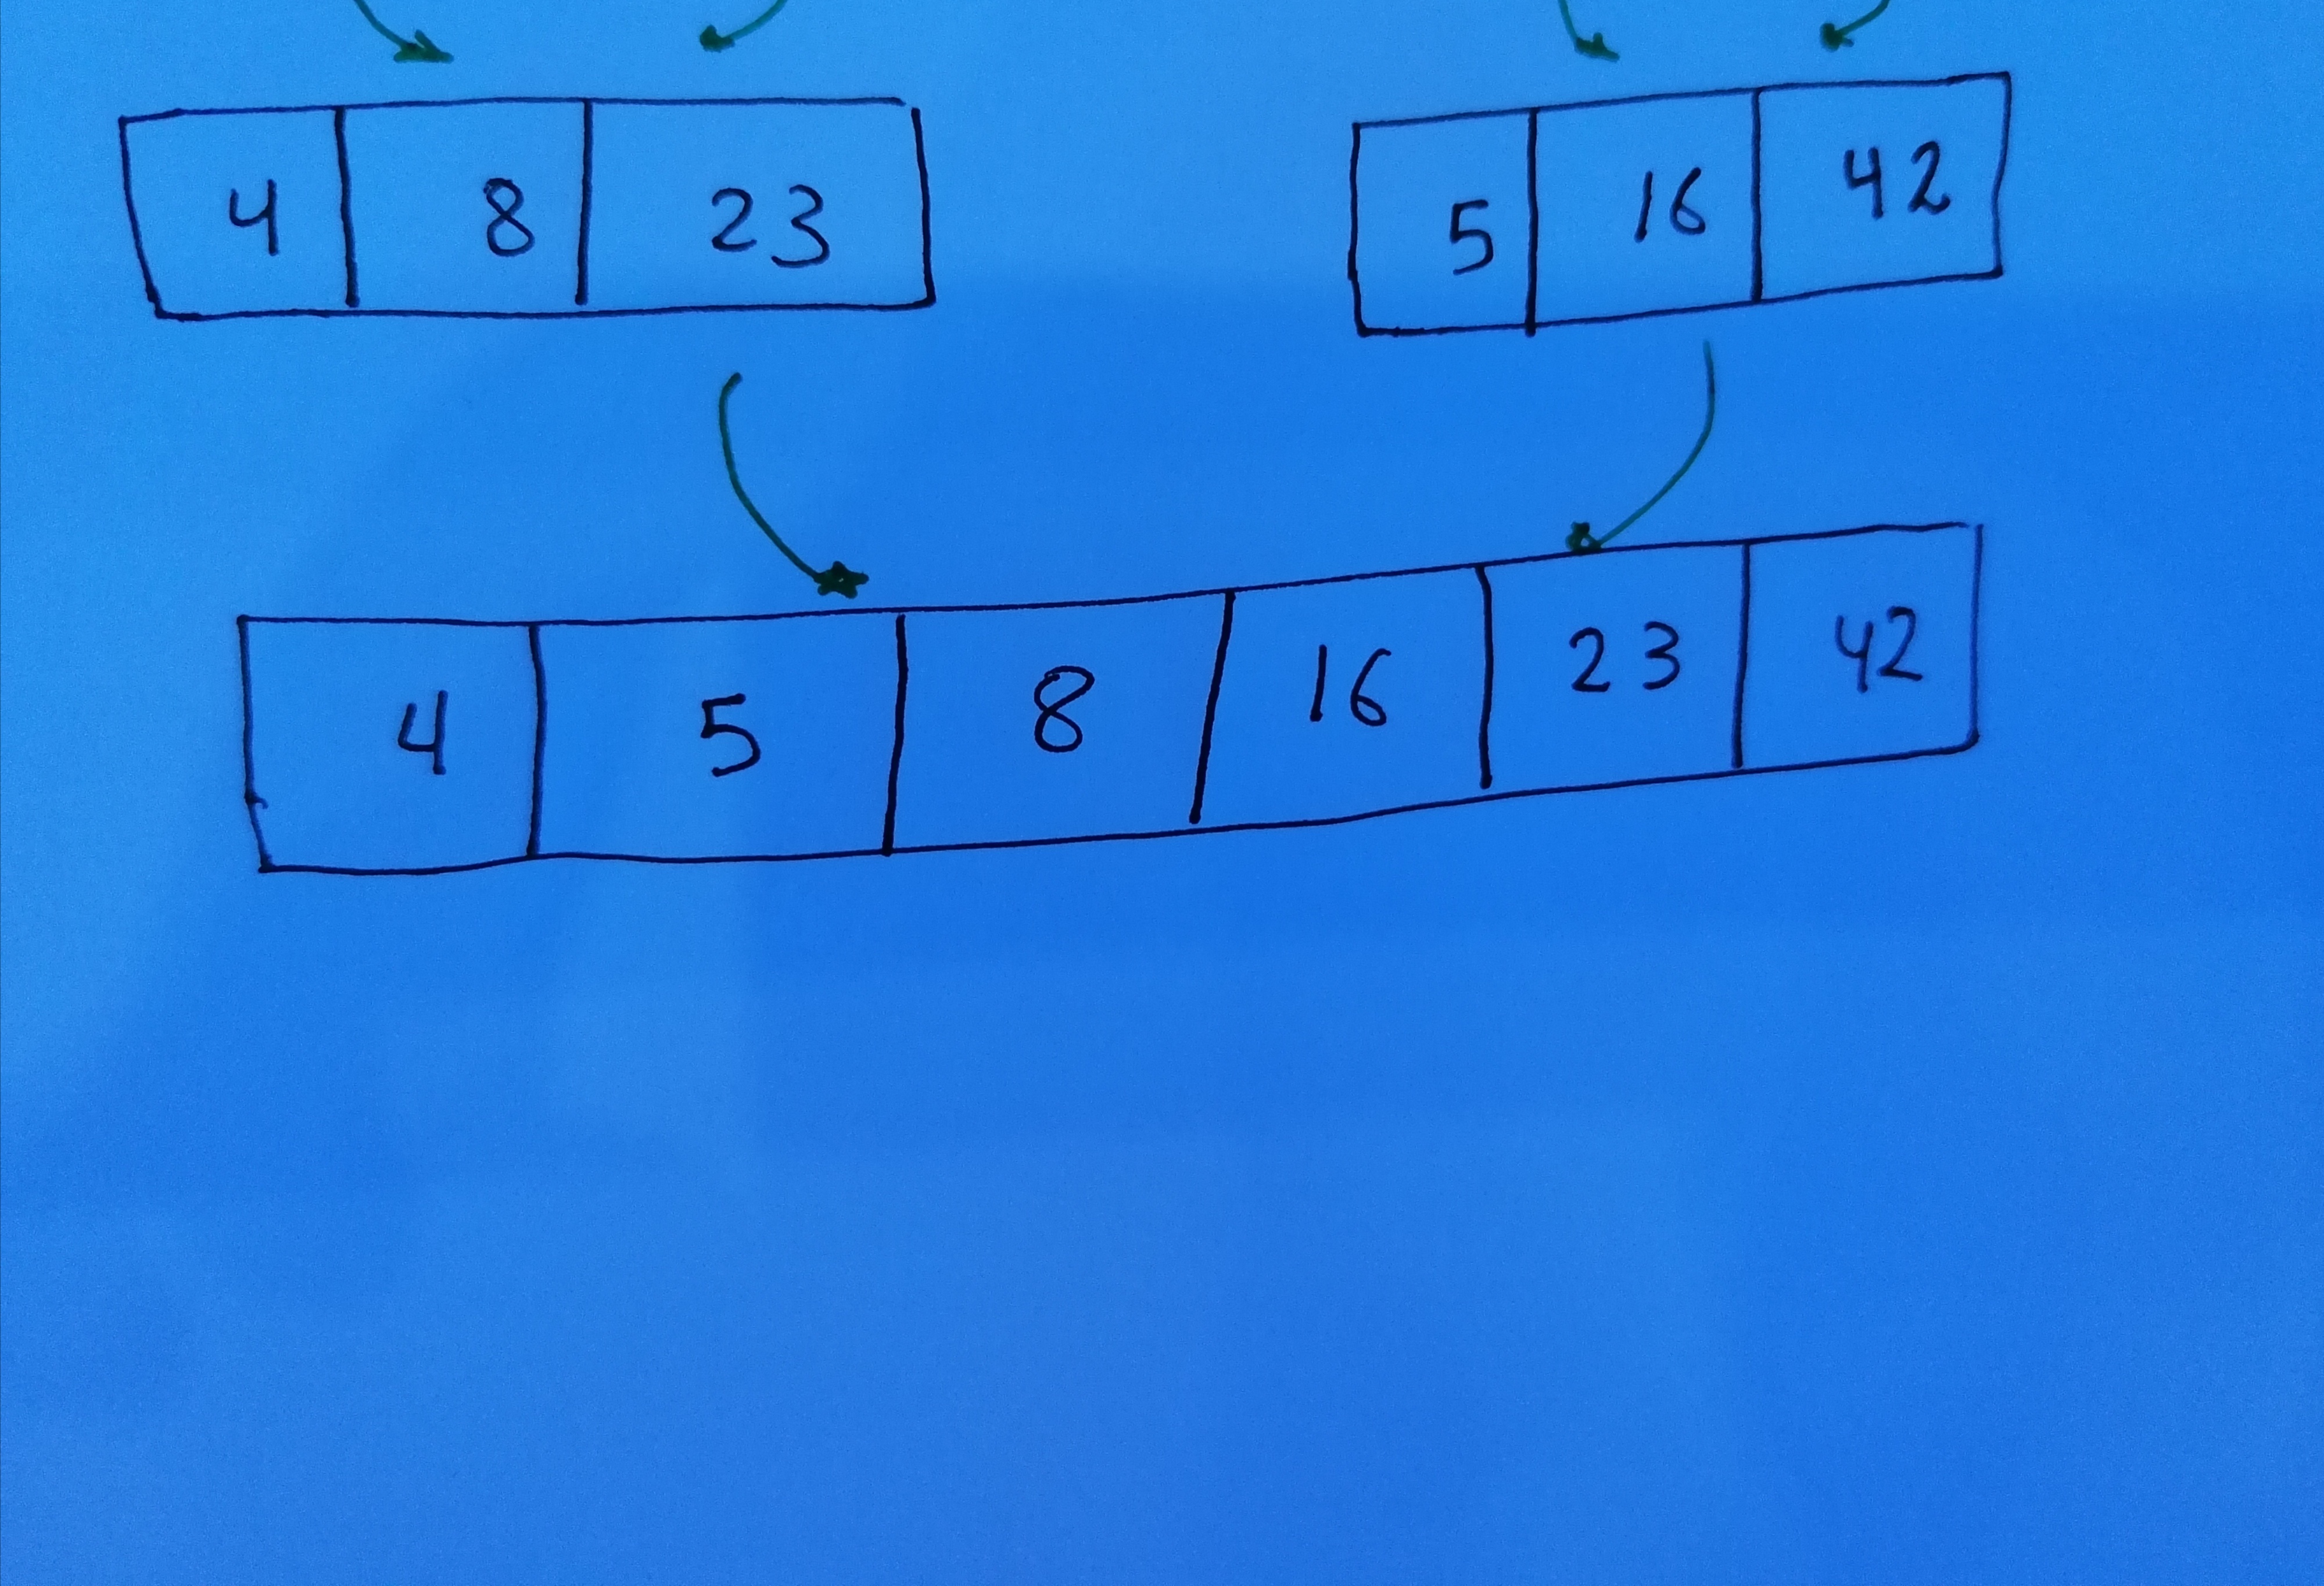 4 8 23 5 16 42
4 5 8 16 23 42